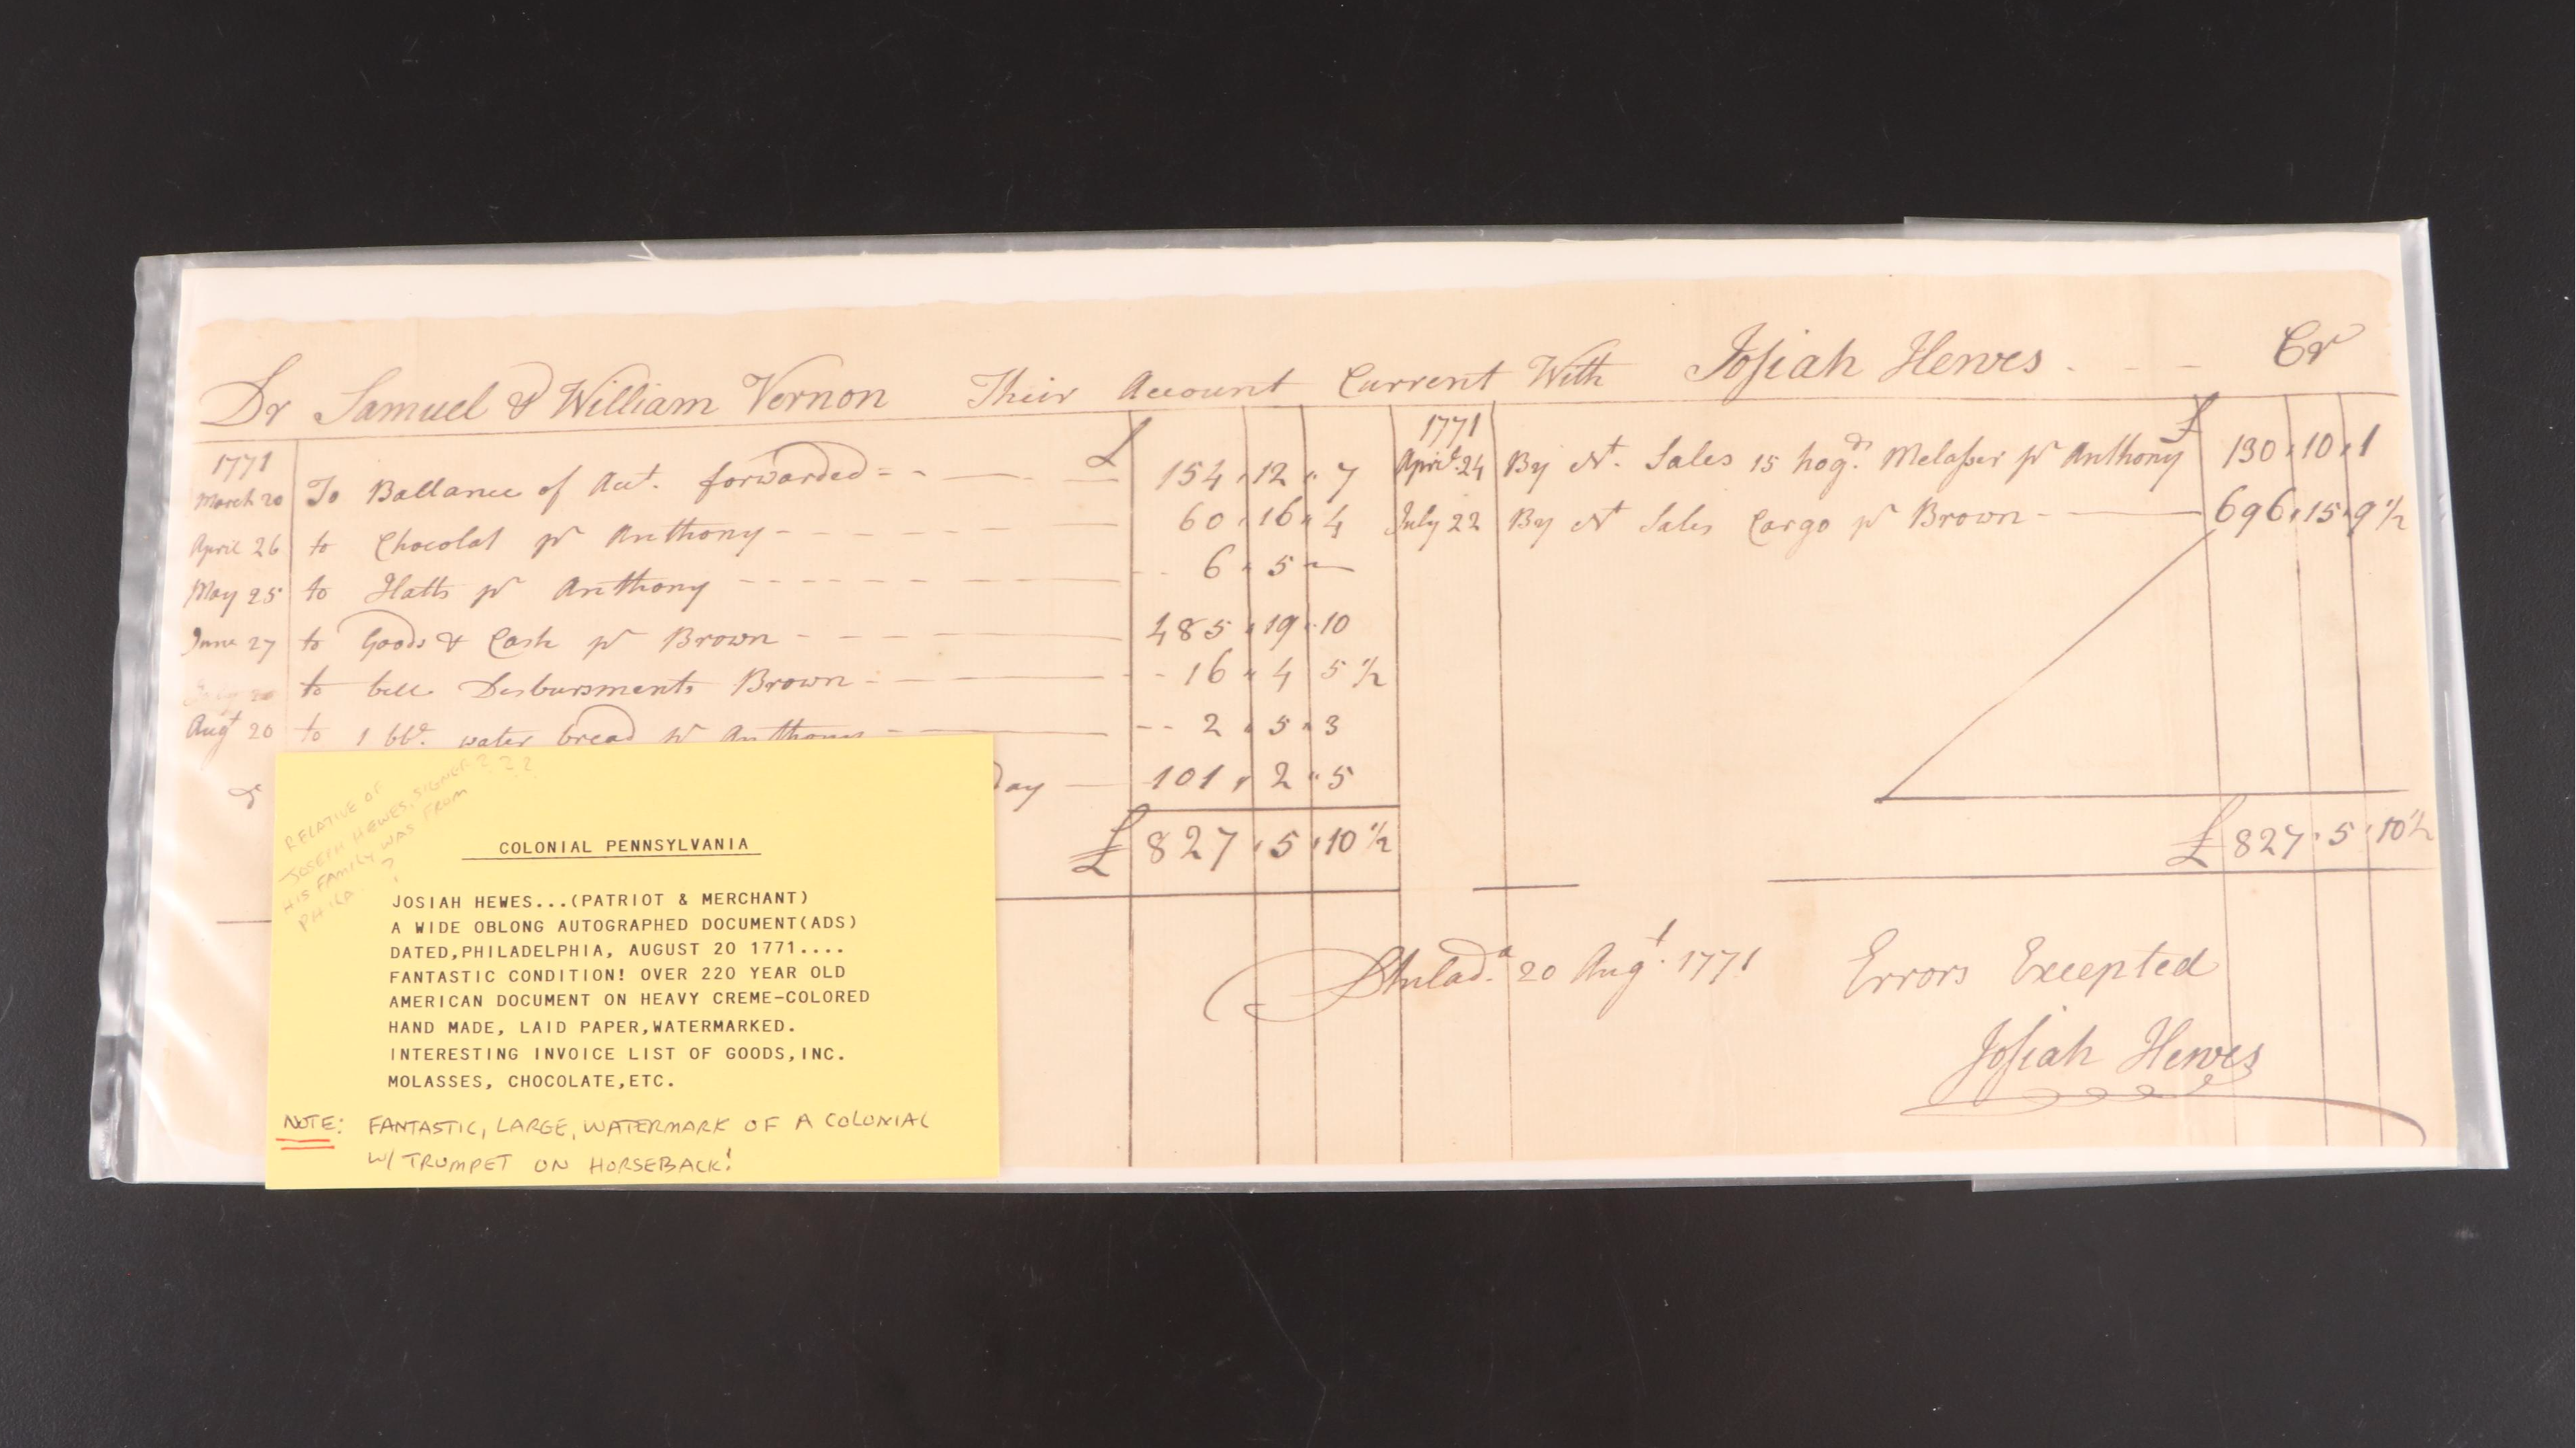 Dr Samuel & William Vernon Their Account Current With Josiah Hewes Cr
1771 £
March 20 To Ballance of Acct. forwarded 154 12 7
April 26 to Chocolat pr Anthony 60 16 4
May 25 to Hatts pr Anthony 6 5 —
June 27 to Goods & Cash pr Brown 485 19 10
to bill Desbursments Brown 16 4 5 1/2
Augt 20 to 1 bbl. water bread pr Anthony 2 5 3
day 101 2 5
£ 827 5 10 1/2
1771 £
April 24 By Nt. Sales 15 hogds. Melasses pr Anthony 130 10 1
July 22 By Nt Sales Cargo pr Brown 696 15 9 1/2
£ 827 5 10 1/2
Philada. 20 Augt. 1771 Errors Excepted
Josiah Hewes
RELATIVE OF
JOSEPH HEWES, SIGNER ? ? ?
HIS FAMILY WAS FROM
PHILA. ?
COLONIAL PENNSYLVANIA
JOSIAH HEWES...(PATRIOT & MERCHANT)
A WIDE OBLONG AUTOGRAPHED DOCUMENT(ADS)
DATED,PHILADELPHIA, AUGUST 20 1771....
FANTASTIC CONDITION! OVER 220 YEAR OLD
AMERICAN DOCUMENT ON HEAVY CREME-COLORED
HAND MADE, LAID PAPER,WATERMARKED.
INTERESTING INVOICE LIST OF GOODS,INC.
MOLASSES, CHOCOLATE,ETC.
NOTE: FANTASTIC, LARGE, WATERMARK OF A COLONIAL
W/ TRUMPET ON HORSEBACK!